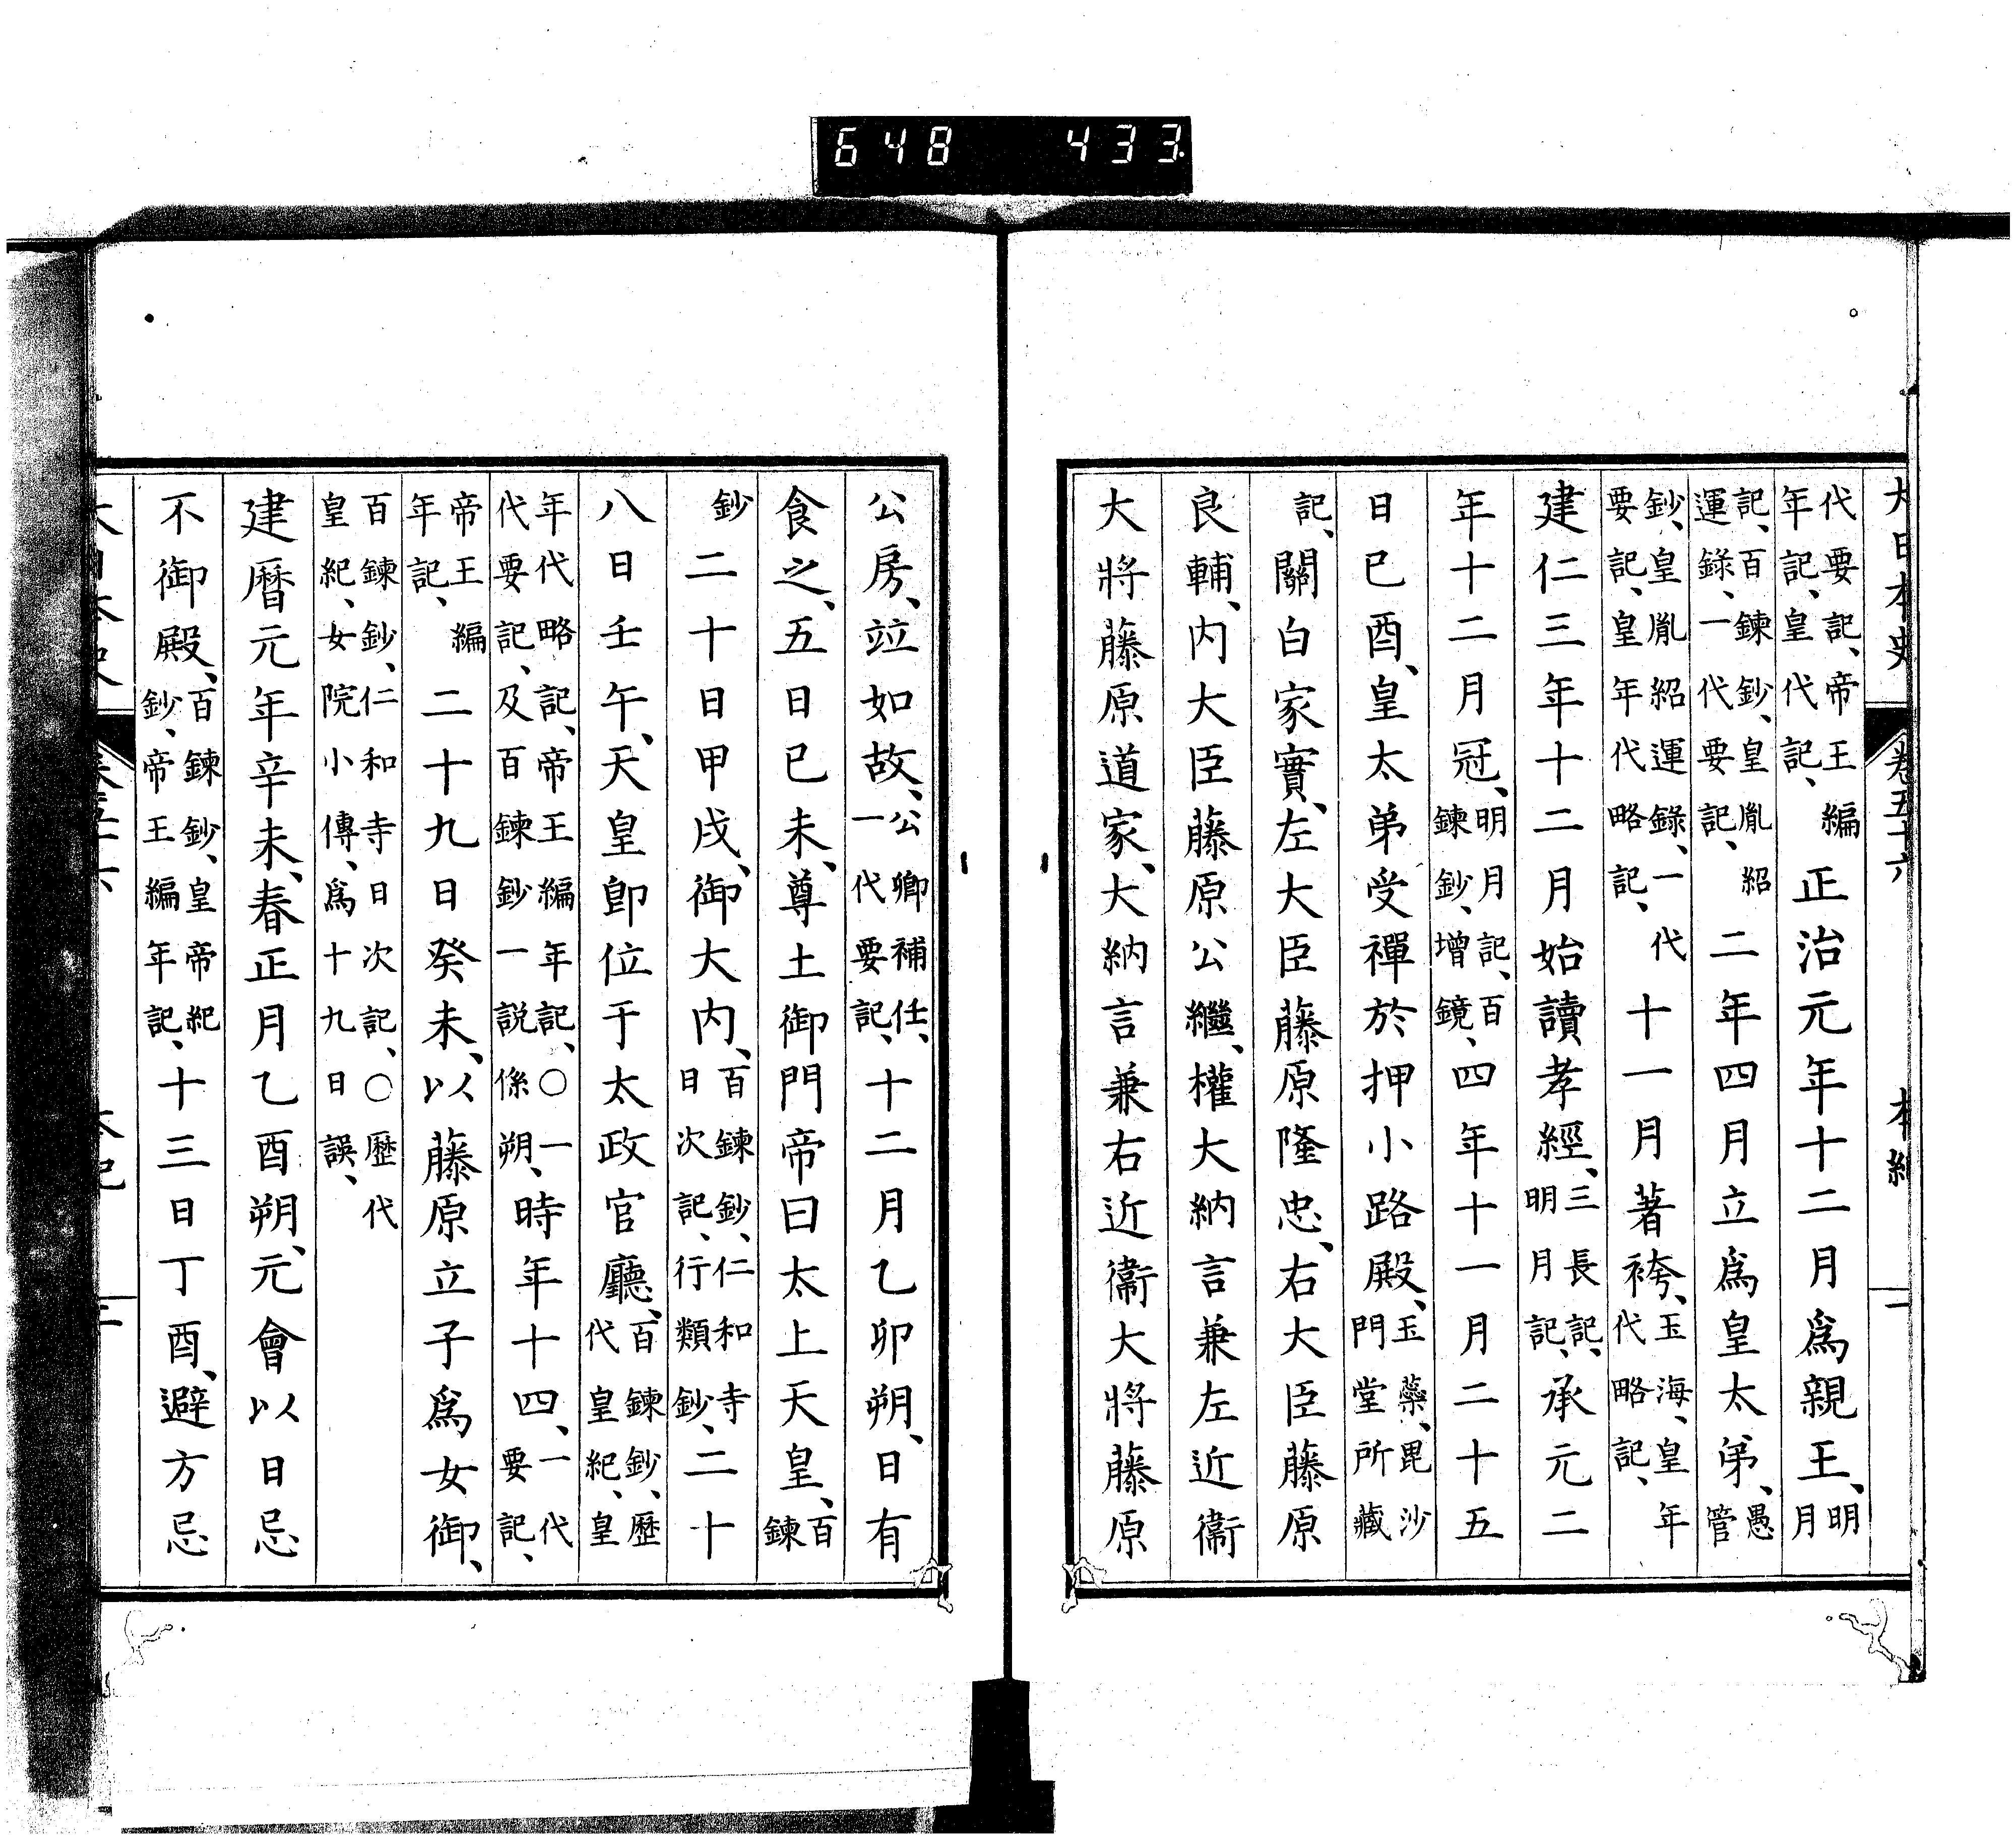 648 433
大日本史 卷五十六 本紀 二
代要記、帝王編年記、皇代記、正治元年十二月爲親王、明月
記、百鍊鈔、皇胤紹運錄、一代要記、二年四月立爲皇太弟、愚管
鈔、皇胤紹運錄、一代要記、皇年代略記、十一月著袴、玉海、皇年代略記、
建仁三年十二月始讀孝經、三長記、明月記、承元二
年十二月冠、明月記、百鍊鈔、增鏡、四年十一月二十五
日已酉、皇太弟受禪於押小路殿、玉蘂、毘沙門堂所藏
記、關白家實、左大臣藤原隆忠、右大臣藤原
良輔、内大臣藤原公繼、權大納言兼左近衞
大將藤原道家、大納言兼右近衞大將藤原
公房、竝如故、公卿補任、一代要記、十二月乙卯朔、日有
食之、五日已未、尊土御門帝曰太上天皇、百鍊
鈔二十日甲戌、御大内、百鍊鈔、仁和寺日次記、行類鈔、二十
八日壬午、天皇卽位于太政官廳、百鍊鈔、歷代皇紀、皇
年代略記、帝王編年記、〇一代要記、及百鍊鈔一説係朔、時年十四、一代要記、
帝王編年記、二十九日癸未、以藤原立子爲女御、
百鍊鈔、仁和寺日次記、〇歷代皇紀、女院小傳、爲十九日誤、
建暦元年辛未、春正月乙酉朔、元會以日忌
不御殿、百鍊鈔、皇帝紀鈔、帝王編年記、十三日丁酉、避方忌